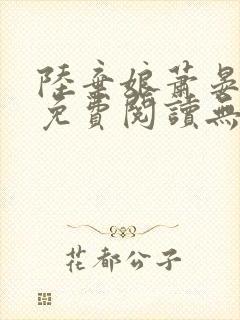 陸棄娘蕭晏
免費閱讀無
花都公子